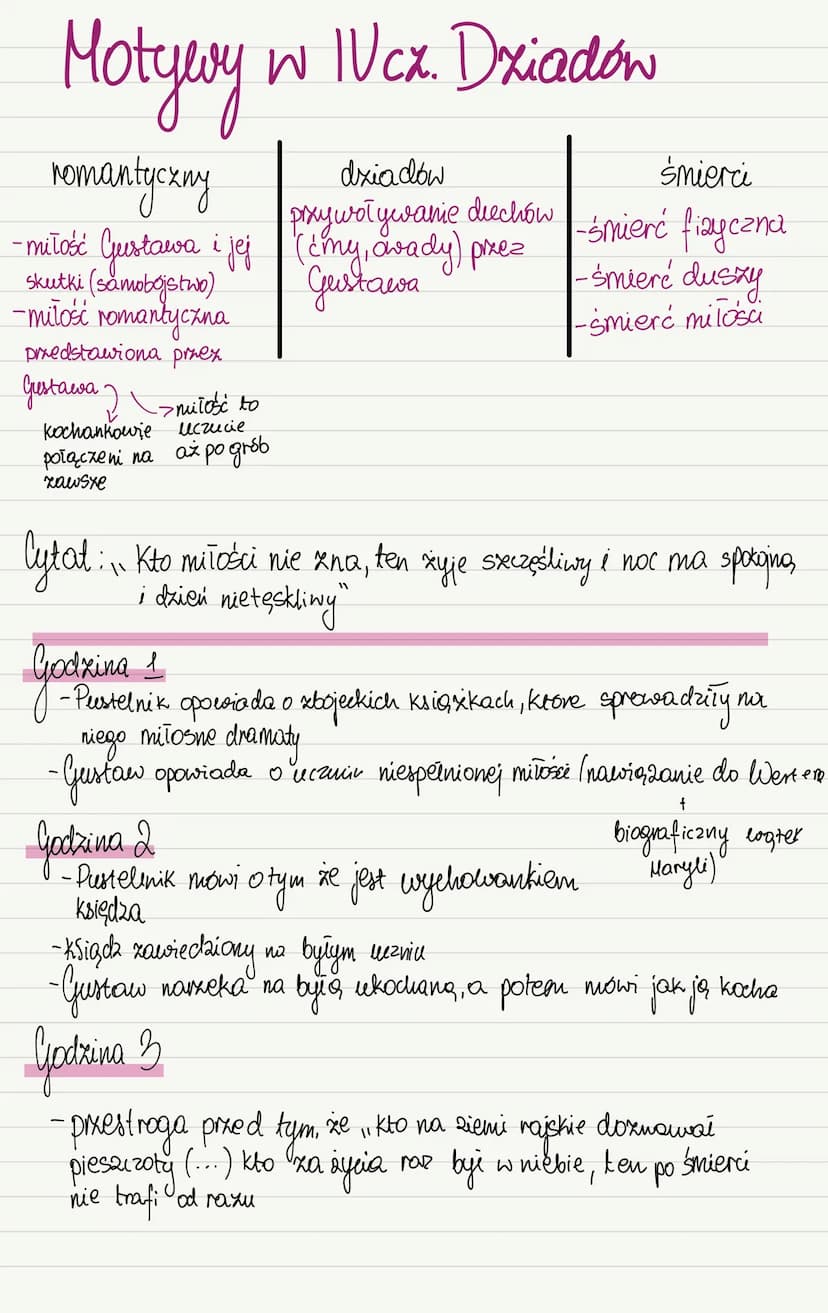 Motywy w IV cz. Dziadów
romantyczny
-miłość Gustawa i jej
skutki (samobójstwo)
-miłość romantyczna
przedstawiona przez
Gustawa
kochankowie
połączeni na
zawsze
->miłość to
uczucie
aż po grób
dziadów
przywoływanie duchów
(ćmy, owady) przez
Gustawa
śmierci
-śmierć fizyczna
-śmierć duszy
-śmierć miłości
Cytat: „Kto miłości nie zna, ten żyje szczęśliwy i noc ma spokojną
i dzień nietęskliwy"
Godzina 1
-Pustelnik opowiada o zbójeckich książkach, które sprowadziły na
niego miłosne dramaty
-Gustaw opowiada o uczuciu niespełnionej miłości (nawiązanie do Wertera
+
biograficzny wątek
Maryli)
Godzina 2
-Pustelnik mówi o tym że jest wychowankiem
księdza
-Ksiądz zawiedziony na byłym uczniu
-Gustaw narzeka na byłą ukochaną, a potem mówi jak ją kocha
Godzina 3
-przestroga przed tym, że „kto na ziemi rajskie doznawał
pieszczoty (...) kto za życia raz był w niebie, ten po śmierci
nie trafi od razu